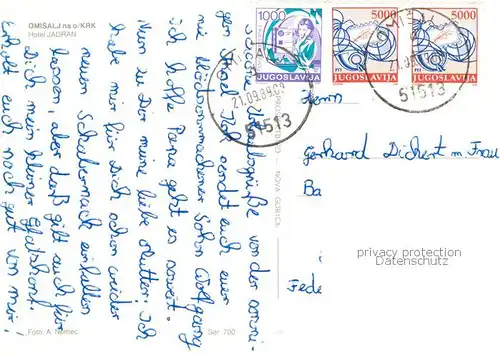 OMIŠALJ na o/KRK
Hotel JADRAN
1000
JUGOSLAVIJA
5000
JUGOSLAVIJA
5000
JUGOSLAVIJA
21.09.89.09
51513
51513
Schöne Urlaubsgrüße von der
gen Insel Krk sendet euch euer
Sohn Wolfgang
Ich hoffe Peene geht es soweit
Nun zu Dir meine liebe Mutter! Ich
habe mir für Dich schon wieder
neuen Schabernack einfallen
lassen, aber das gilt auch für
Dich mein kleiner Glatzkopf.
Erholt euch noch gut von mir!
Herrn
Gerhard Dichert m. Frau
Ba
Fede
NOVA GORICA
Foto: A. Nemec
Ser 700
privacy protection
Datenschutz